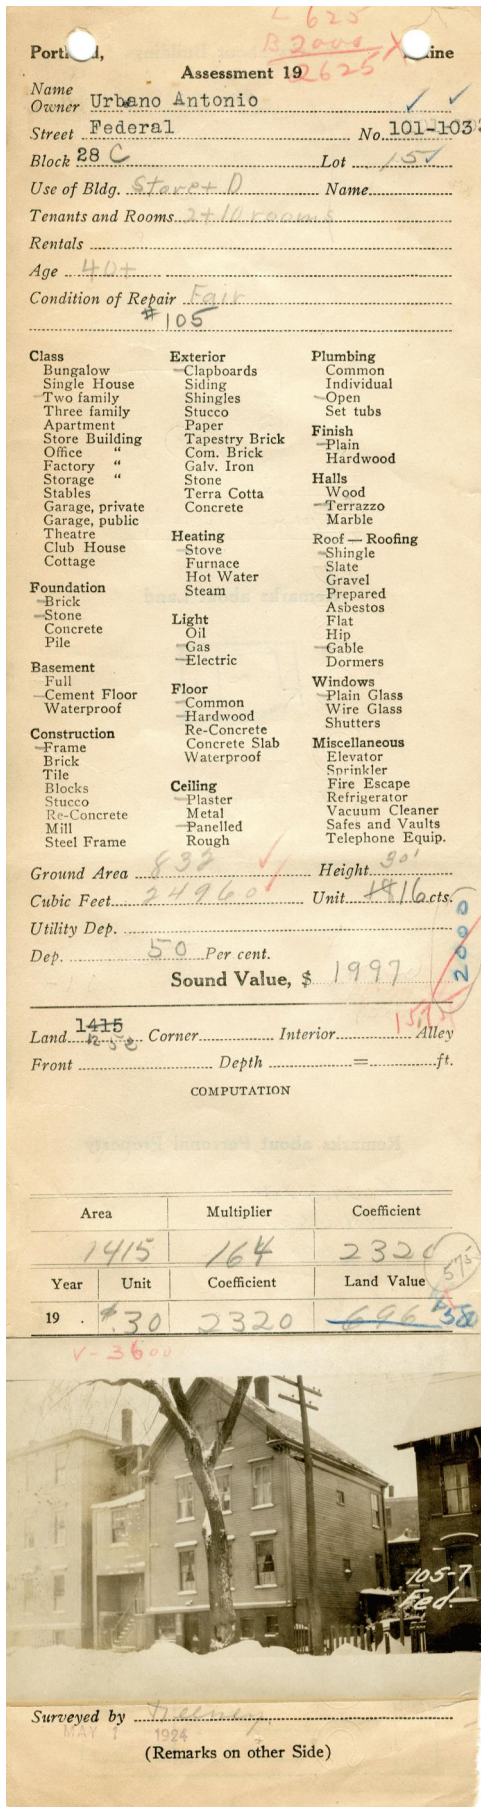 L 625
B 2000
2625
Portland, Maine
Assessment 19
Name
Owner Urbano Antonio
Street Federal No. 101-103
Block 28 C Lot 15
Use of Bldg. Store + D Name
Tenants and Rooms 2 + 10 rooms
Rentals
Age 40+
Condition of Repair Fair
#105
Class
Bungalow
Single House
Two family
Three family
Apartment
Store Building
Office "
Factory "
Storage "
Stables
Garage, private
Garage, public
Theatre
Club House
Cottage
Foundation
Brick
Stone
Concrete
Pile
Basement
Full
Cement Floor
Waterproof
Construction
Frame
Brick
Tile
Blocks
Stucco
Re-Concrete
Mill
Steel Frame
Exterior
Clapboards
Siding
Shingles
Stucco
Paper
Tapestry Brick
Com. Brick
Galv. Iron
Stone
Terra Cotta
Concrete
Heating
Stove
Furnace
Hot Water
Steam
Light
Oil
Gas
Electric
Floor
Common
Hardwood
Re-Concrete
Concrete Slab
Waterproof
Ceiling
Plaster
Metal
Panelled
Rough
Plumbing
Common
Individual
Open
Set tubs
Finish
Plain
Hardwood
Halls
Wood
Terrazzo
Marble
Roof — Roofing
Shingle
Slate
Gravel
Prepared
Asbestos
Flat
Hip
Gable
Dormers
Windows
Plain Glass
Wire Glass
Shutters
Miscellaneous
Elevator
Sprinkler
Fire Escape
Refrigerator
Vacuum Cleaner
Safes and Vaults
Telephone Equip.
Ground Area 832 Height 30'
Cubic Feet 24960 Unit 16 cts.
Utility Dep.
Dep. 50 Per cent.
2000
Sound Value, $ 1997
1575
1415
Land Corner Interior Alley
Front Depth = ft.
COMPUTATION
Area Multiplier Coefficient
1415 164 2320
575
Year Unit Coefficient Land Value
19 . $.30 2320 696
V-3600
105-7
Fed.
Surveyed by
MAY 1 1924
(Remarks on other Side)